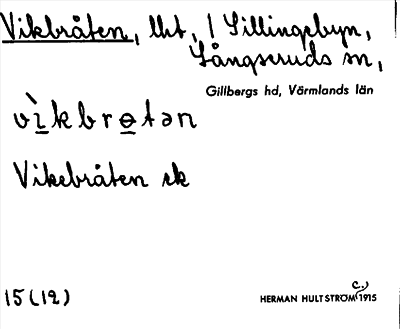 Vikbråten, lht, / Sillingebyn,
Långseruds sn,
Gillbergs hd, Värmlands län
vìkbrɵtən
Vikebråten ek
15 (12)
HERMAN HULTSTRÖM c. 1915